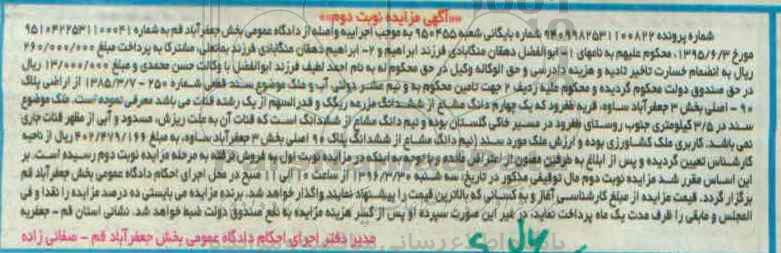 ««آگهی مزایده نوبت دوم»»
شماره پرونده ۹۴۰۹۹۸۲۵۳۱۱۰۰۸۲۲ شماره بایگانی شعبه ۹۵۰۴۵۵ به موجب اجراییه واصله از دادگاه عمومی بخش جعفرآباد قم به شماره ۹۵۱۰۴۲۲۵۳۱۱۰۰۰۴۱
مورخ ۱۳۹۵/۶/۳ محکوم علیهم به نامهای ۱- ابوالفضل دهقان منگابادی فرزند ابراهیم و ۲- ابراهیم دهقان منگابادی فرزند مشترکا به پرداخت مبلغ ۲۶۰/۰۰۰/۰۰۰
ریال به انضمام خسارت تاخیر تادیه و هزینه دادرسی و حق الوکاله وکیل در حق محکوم له به نام احمد لطیف فرزند ابوالفضل با وکالت حسن محمدی و مبلغ ۱۳/۰۰۰/۰۰۰ ریال
در حق صندوق دولت محکوم گردیده و محکوم علیه ردیف ۲ جهت تامین محکوم به و نیم عشر دولتی آب و ملک موضوع سند قطعی شماره ۲۵۰ - ۱۳۸۵/۳/۷ از اراضی پلاک
۹۰ - اصلی بخش ۳ جعفرآباد ساوه، قریه طغرود که یک چهارم دانگ مشاع از ششدانگ مزرعه ریگک و قدرالسهم از یک رشته قنات می باشد معرفی نموده است. ملک موضوع
سند در ۳/۵ کیلومتری جنوب روستای طغرود در مسیر خاکی گلستان بوده و نیم دانگ مشاع از ششدانگ است که قنات آن به علت ریزش، مسدود و آبی از مظهر قنات جاری
نمی باشد. کاربری ملک کشاورزی بوده و ارزش ملک مورد سند (نیم دانگ مشاع از ششدانگ پلاک ۹۰ اصلی بخش ۳ جعفرآباد ساوه، به مبلغ ۴۰۲/۴۷۹/۱۶۶ ریال از ناحیه
کارشناس تعیین گردیده و پس از ابلاغ به طرفین مصون از اعتراض مانده و با توجه به اینکه در مزایده نوبت اول به فروش نرفته به مرحله مزایده نوبت دوم رسیده است. بر
این اساس مقرر شد مزایده نوبت دوم مال توقیفی مذکور در تاریخ: سه شنبه ۱۳۹۶/۳/۳۰ از ساعت ۱۰ الی ۱۱ صبح در محل اجرای احکام دادگاه عمومی بخش جعفرآباد قم
برگزار گردد. قیمت مزایده از مبلغ کارشناسی آغاز و به کسانی که بالاترین قیمت را پیشنهاد نمایند واگذار خواهد شد. برنده مزایده می بایستی ده درصد مزایده را نقدا و فی
المجلس و مابقی را ظرف مدت یک ماه پرداخت نماید؛ در غیر این صورت سپرده او پس از کسر هزینه مزایده به نفع صندوق دولت ضبط خواهد شد. نشانی استان قم - جعفریه
مدیر دفتر اجرای احکام دادگاه عمومی بخش جعفرآباد قم - صفائی زاده